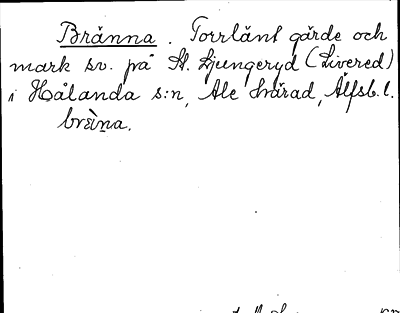 Brånna. Torrlänt gärde och
mark sv. på St. Ljungeryd (Livered)
i Hålanda s:n, Ale härad, Älfsb. l.
brèi̯na.